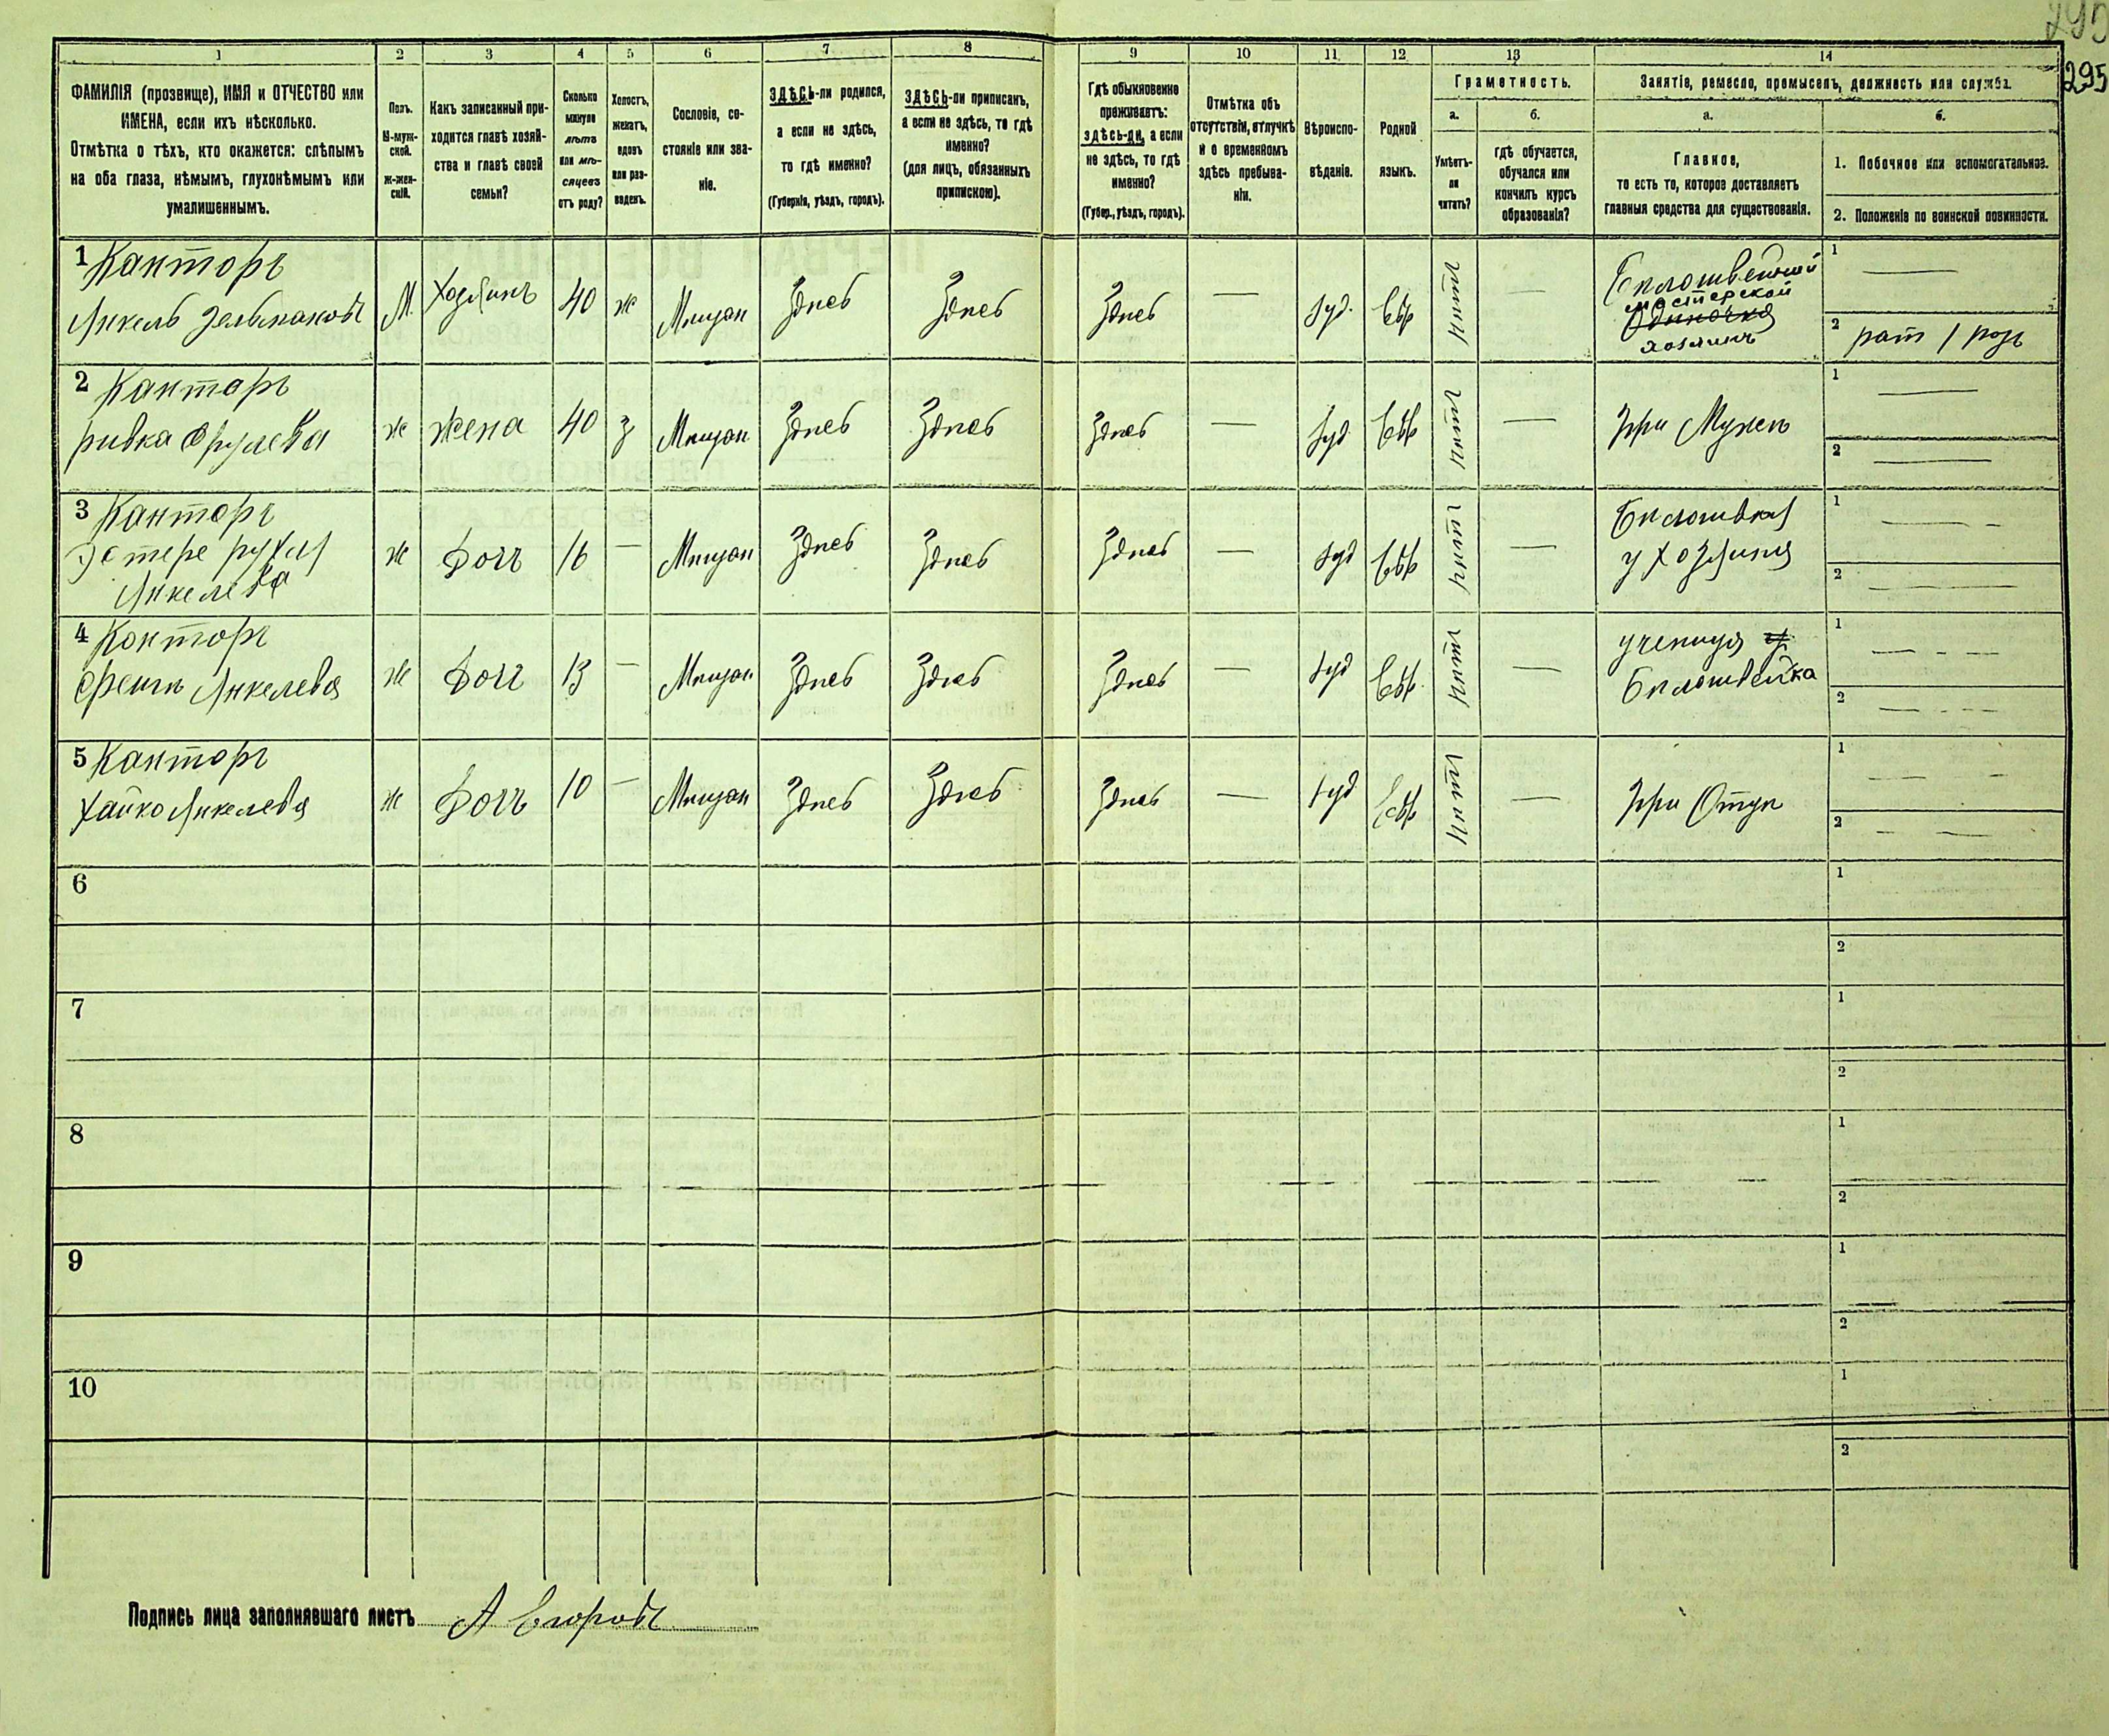 295
295
1
2
3
4
5
6
7
8
9
10
11
12
13
14
ФАМИЛІЯ (прозвище), ИМЯ и ОТЧЕСТВО или
ИМЕНА, если ихъ нѣсколько.
Отмѣтка о тѣхъ, кто окажется: слѣпымъ
на оба глаза, нѣмымъ, глухонѣмымъ или
умалишеннымъ.
Полъ.
М-муж-
ской.
ж-жен-
скій.
Какъ записанный при-
ходится главѣ хозяй-
ства и главѣ своей
семьи?
Сколько
минуло
лѣтъ
или мѣ-
сяцевъ
отъ роду?
Холостъ,
женатъ,
вдовъ
или раз-
веденъ.
Сословіе, со-
стояніе или зва-
ніе.
ЗДѢСЬ-ли родился,
а если не здѣсь,
то гдѣ именно?
(Губернія, уѣздъ, городъ).
ЗДѢСЬ-ли приписанъ,
а если не здѣсь, то гдѣ
именно?
(для лицъ, обязанныхъ
припискою).
Гдѣ обыкновенно
проживаетъ:
здѣсь-ли, а если
не здѣсь, то гдѣ
именно?
(Губер., уѣздъ, городъ).
Отмѣтка объ
отсутствіи, отлучкѣ
и о временномъ
здѣсь пребыва-
ніи.
Вѣроиспо-
вѣданіе.
Родной
языкъ.
Граметность.
а.
Умѣетъ-
ли
читать?
б.
гдѣ обучается,
обучался или
кончилъ курсъ
образованія?
Занятіе, ремесло, промыселъ, должность или служба.
а.
Главное,
то есть то, которое доставляетъ
главныя средства для существованія.
б.
1. Побочное или вспомогательное.
2. Положеніе по воинской повинности.
1 Канторъ
Янкель Зельмановъ
М.
Хозяинъ
40
ж
Мѣщан
Здѣсь
Здѣсь
Здѣсь
—
Іуд.
Евр
читт
—
Бѣлошвейной
мастерской
Одиночка
хозяинъ
1 —
2 рат 1 разр
2 Канторъ
Ривка Срулева
ж
жена
40
з
Мѣщан
Здѣсь
Здѣсь
Здѣсь
—
Іуд
Евр
—
При Мужѣ
1 —
2 —
3 Канторъ
Эстере Рухля
Янкелева
ж
Дочь
16
—
Мѣщан
Здѣсь
Здѣсь
Здѣсь
—
Іуд
Евр
—
Бѣлошвея
у Хозяина
1 —
2 —
4 Канторъ
Фейга Янкелева
ж
Дочь
13
—
Мѣщан
Здѣсь
Здѣсь
Здѣсь
—
Іуд
Евр
—
ученица
Бѣлошвейка
1 —
2 —
5 Канторъ
Хайка Янкелева
ж
Дочь
10
—
Мѣщан
Здѣсь
Здѣсь
Здѣсь
—
Іуд
Евр
—
При Отцѣ
1 —
2 —
6
1
2
7
1
2
8
1
2
9
1
2
10
1
2
Подпись лица заполнявшаго листъ А Егоровъ